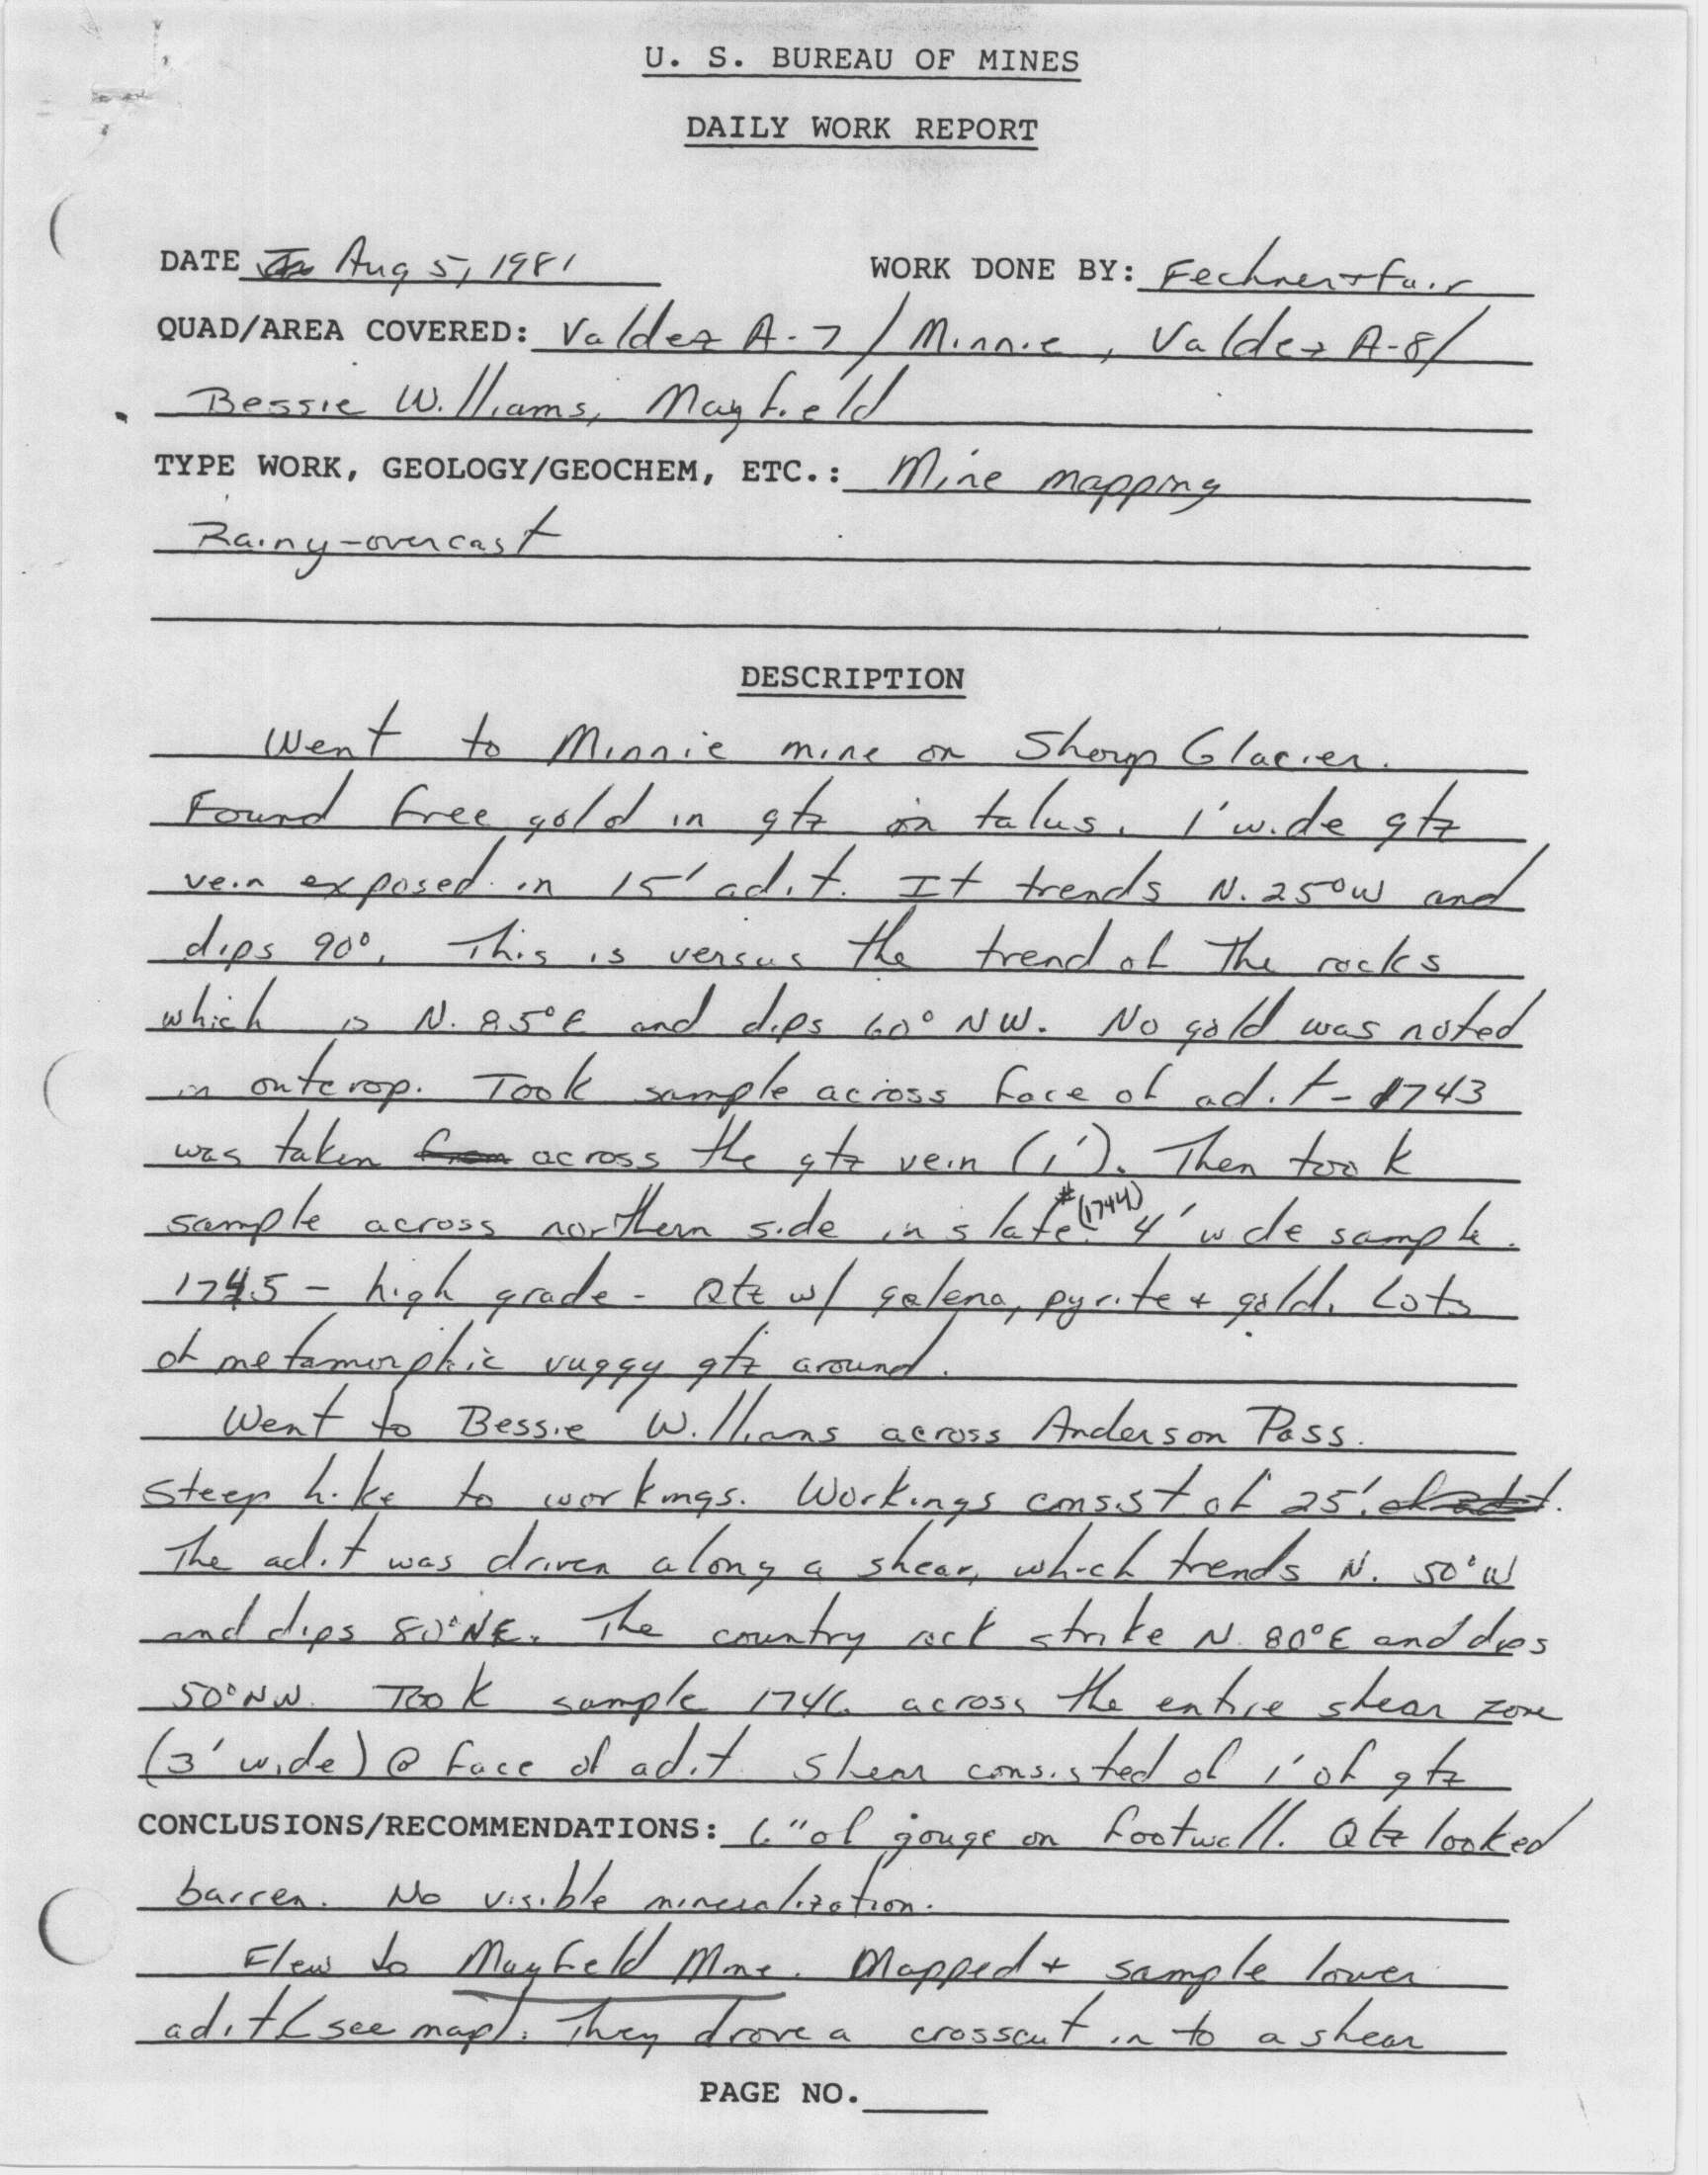 U. S. BUREAU OF MINES
DAILY WORK REPORT
DATE Aug 5, 1981 WORK DONE BY: Fechner + Fair
QUAD/AREA COVERED: Valdez A-7 / Minnie, Valdez A-8/
Bessie Williams, Mayfield
TYPE WORK, GEOLOGY/GEOCHEM, ETC.: Mine mapping
Rainy-overcast
DESCRIPTION
Went to Minnie mine on Shoup Glacier.
Found free gold in qtz in talus. 1' wide qtz
vein exposed in 15' adit. It trends N. 25°W and
dips 90°. This is versus the trend of the rocks
which is N. 85°E and dips 60° NW. No gold was noted
in outcrop. Took sample across face of adit - 1743
was taken from across the qtz vein (1'). Then took
sample across northern side in slate. #(1744) 4' wide sample.
1745 - high grade - Qtz w/ galena, pyrite + gold. Lots
of metamorphic vuggy qtz around.
Went to Bessie Williams across Anderson Pass.
Steep hike to workings. Workings consist of 25' of adit.
The adit was driven along a shear, which trends N. 50°W
and dips 80°NE. The country rock strike N. 80°E and dips
50°NW. Took sample 1746 across the entire shear zone
(3' wide) @ face of adit. Shear consisted of 1' of qtz
CONCLUSIONS/RECOMMENDATIONS: 6" of gouge on footwall. Qtz looked
barren. No visible mineralization.
Flew to Mayfield Mine. Mapped + sample lower
adit (see map). They drove a crosscut in to a shear
PAGE NO.